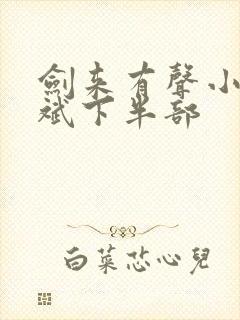 劍来有聲小
斌下半部
白菜芯心兒